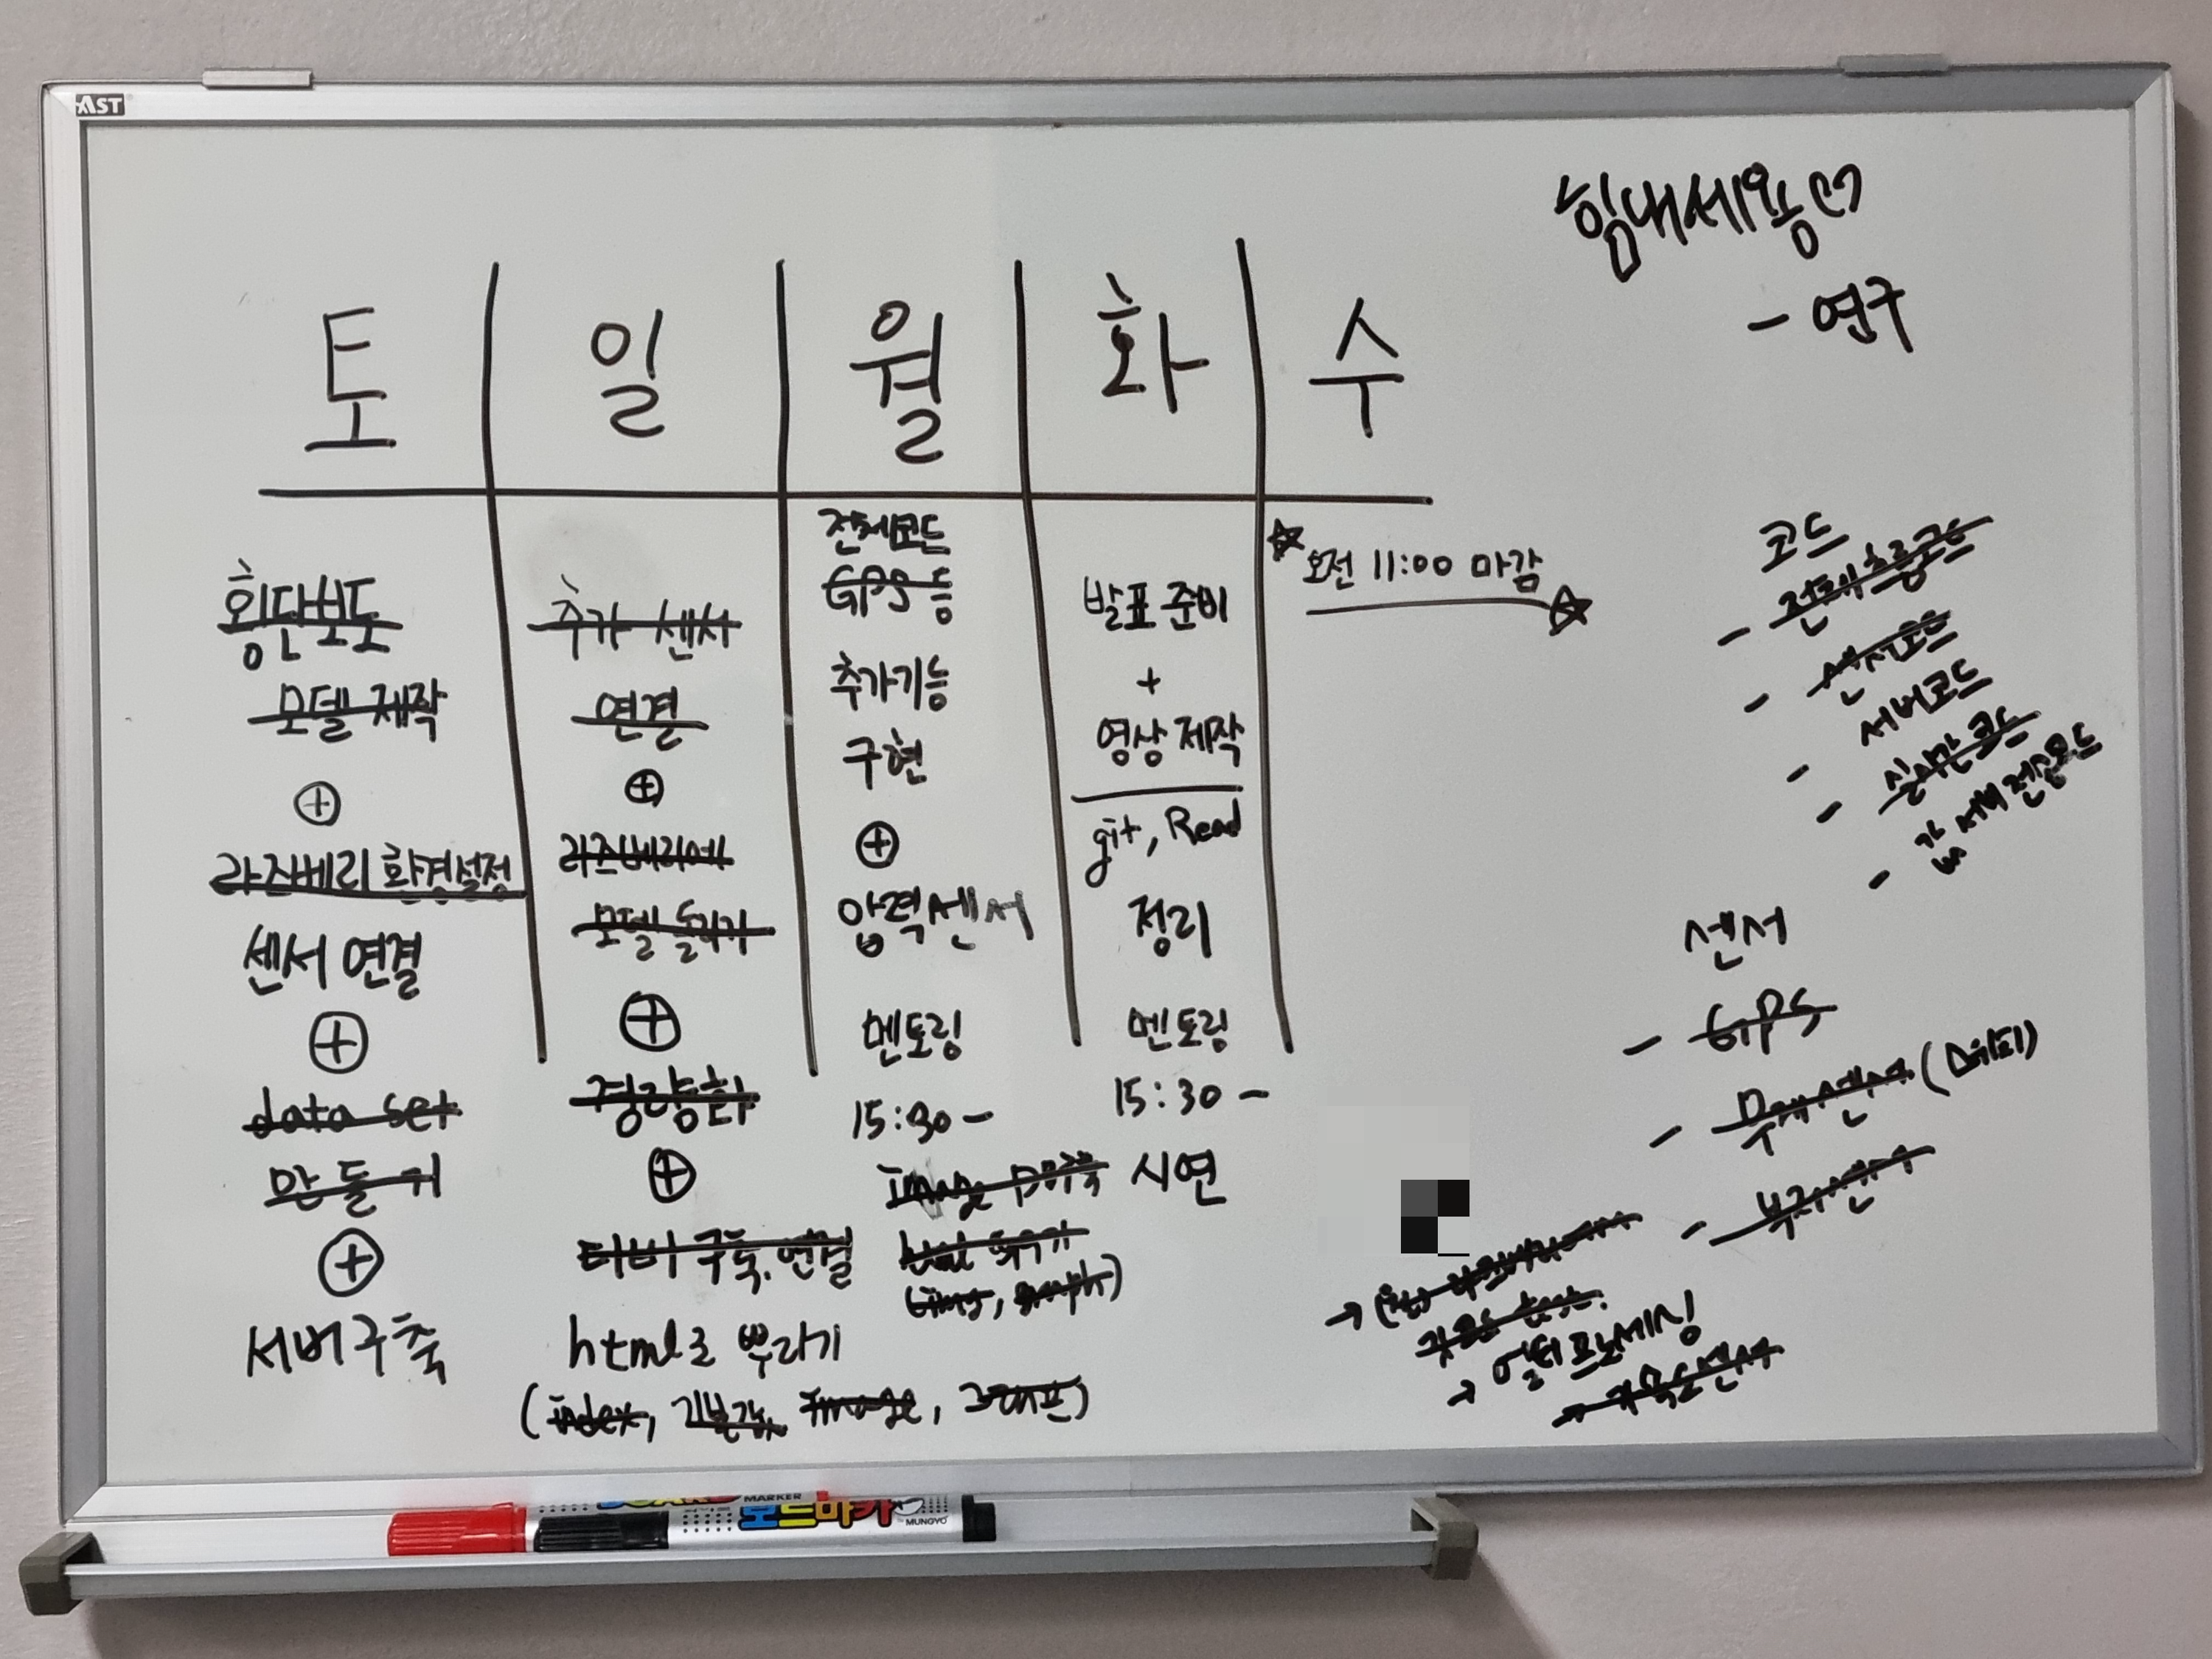 AST
힘내세용♡
- 연구
토 일 월 화 수
횡단보도
모델 제작
⊕
라즈베리 환경설정
센서 연결
⊕
data set
만들기
⊕
서버구축
추가 센서
연결
⊕
라즈베리에
모델 돌리기
⊕
경량화
⊕
구축, 연결
html로 뿌리기
(index, 기본값, Image, 그래프)
전체코드
GPS 등
추가기능
구현
⊕
압력센서
멘토링
15:30 -
Image
html
발표 준비
+
영상 제작
git, Read
정리
멘토링
15:30 -
시연
☆ 오전 11:00 마감 ☆
코드
- 전체 흐름코드
- 센서코드
서버코드
- 실시간 코드
- 값 서버 전송코드
센서
- GPS
- 무게센서
- 부저센서
→
→ 멀티프로세싱
→ 가속도센서
MARKER
보드마카
MUNGYO